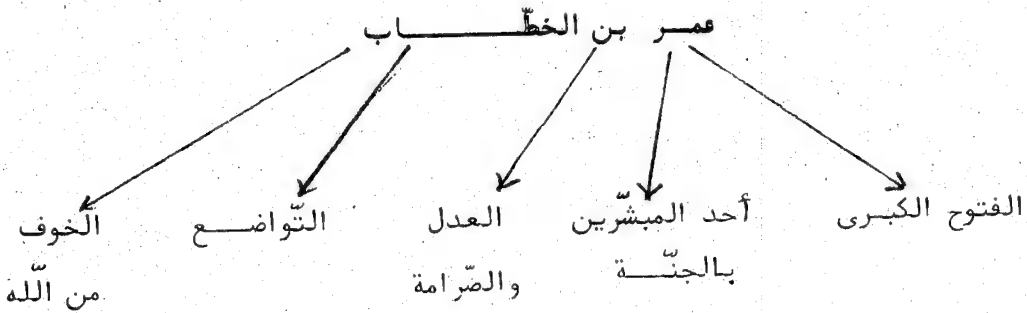 عمر بن الخطّاب
الفتوح الكبرى
أحد المبشّرين
بالجنّة
العدل
والصّرامة
التّواضع
الخوف
من اللّه